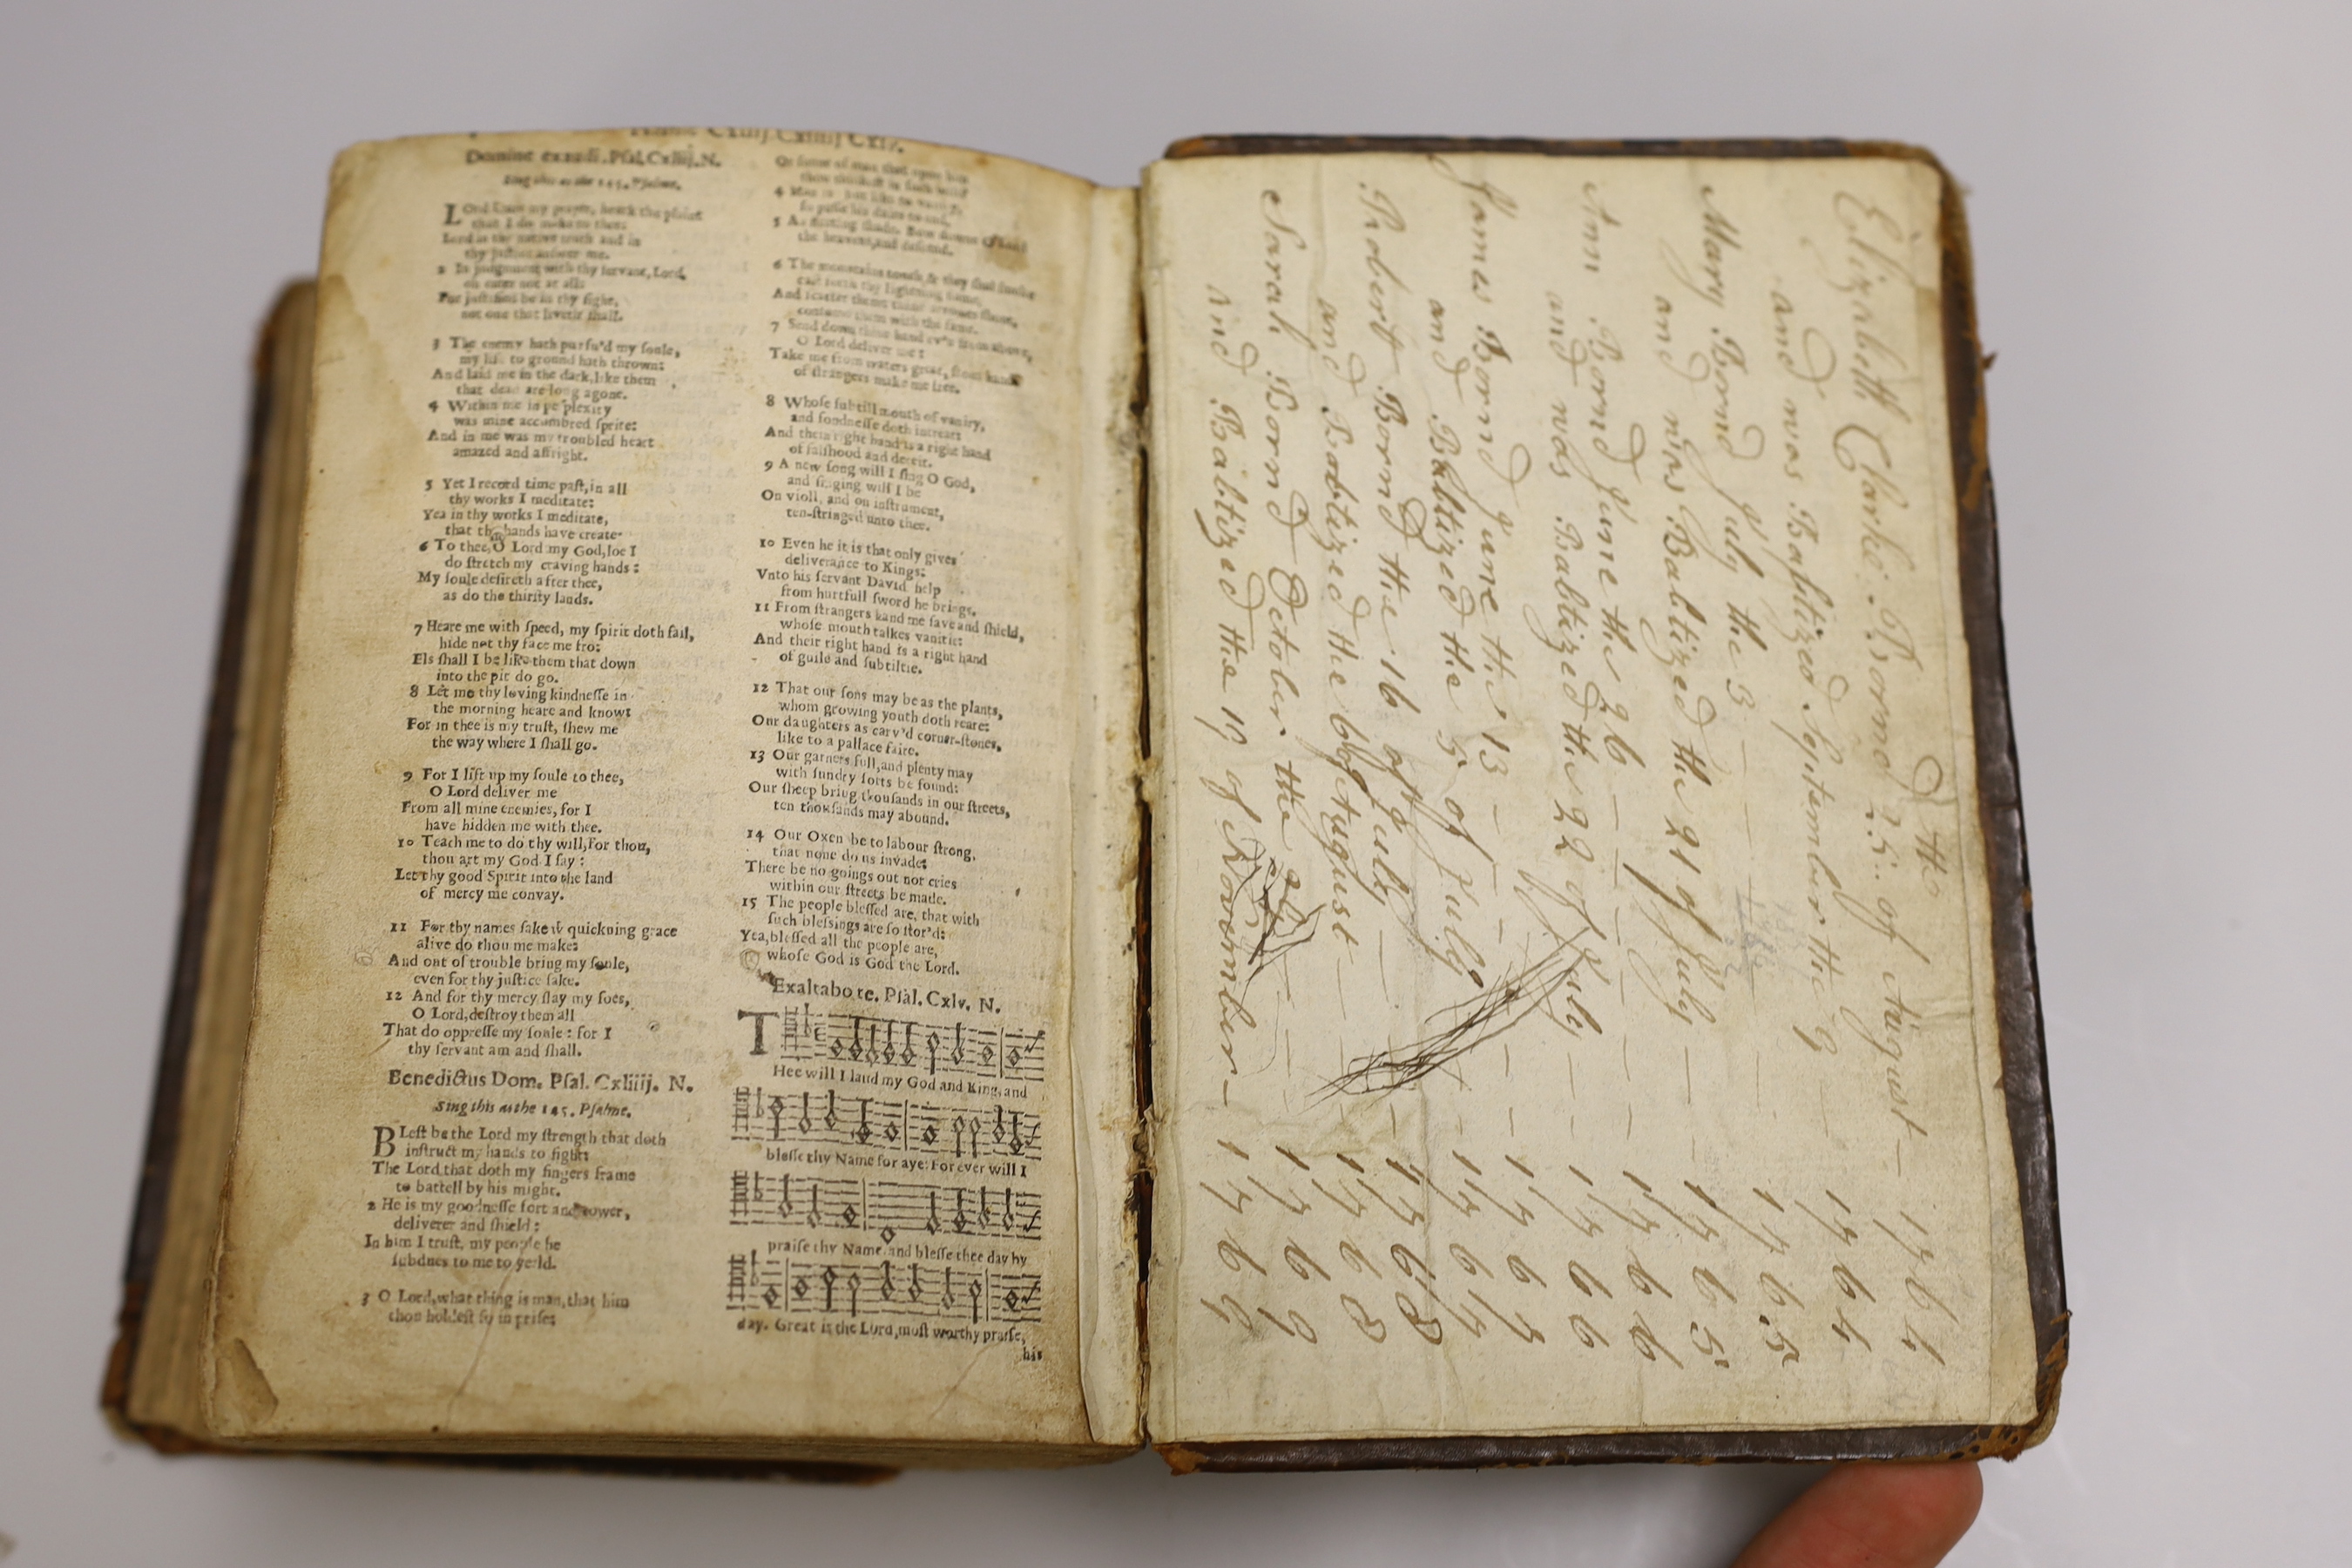 Domine exaudi. Psal. Cxliij. N.
Sing this as the 145. Psalme.
LOrd heare my prayer, heark the plaint
that I do make to thee:
Lord in thy native truth and in
thy justice answer me.
2 In judgment with thy servant, Lord,
oh enter not at all:
For justified be in thy sight,
not one that liveth shall.
3 The enemy hath pursu'd my soule,
my life to ground hath thrown:
And laid me in the dark, like them
that dead are long agone.
4 Within me in perplexity
was mine accumbred sprite:
And in me was my troubled heart
amazed and affright.
5 Yet I record time past, in all
thy works I meditate:
Yea in thy works I meditate,
that thy hands have create.
6 To thee, O Lord my God, loe I
do stretch my craving hands:
My soule desireth after thee,
as do the thirsty lands.
7 Heare me with speed, my spirit doth fail,
hide not thy face me fro:
Els shall I be like them that down
into the pit do go.
8 Let me thy loving kindnesse in
the morning heare and know:
For in thee is my trust, shew me
the way where I shall go.
9 For I lift up my soule to thee,
O Lord deliver me
From all mine enemies, for I
have hidden me with thee.
10 Teach me to do thy will, for thou,
thou art my God I say:
Let thy good Spirit into the land
of mercy me convay.
11 For thy names sake wͭ quickning grace
alive do thou me make:
And out of trouble bring my soule,
even for thy justice sake.
12 And for thy mercy slay my foes,
O Lord, destroy them all
That do oppresse my soule: for I
thy servant am and shall.
Benedictus Dom. Psal. Cxliiij. N.
Sing this as the 145. Psalme.
BLest be the Lord my strength that doth
instruct my hands to fight:
The Lord that doth my fingers frame
to battell by his might.
2 He is my goodnesse fort and tower,
deliverer and shield:
In him I trust, my people he
subdues to me to yeild.
3 O Lord, what thing is man, that him
thou holdest so in prise:
Or sonne of man that upon him
thou thinkest in such wise?
4 Man is but like to vanity,
so passe his daies to end,
5 As fleeting shade. Bow downe O Lord
the heavens, and descend.
6 The mountains touch, & they shal smoke
cast forth thy lightning flame,
And scatter them: thine arrowes shoot,
consume them with the same.
7 Send down thine hand ev'n from above,
O Lord deliver me:
Take me from waters great, from hand
of strangers make me free.
8 Whose subtill mouth of vanity,
and fondnesse doth intreat:
And their right hand is a right hand
of falshood and deceit.
9 A new song will I sing O God,
and singing will I be
On violl, and on instrument,
ten-stringed unto thee.
10 Even he it is that only gives
deliverance to Kings:
Vnto his servant David help
from hurtfull sword he brings.
11 From strangers hand me save and shield,
whose mouth talkes vanitie:
And their right hand is a right hand
of guile and subtiltie.
12 That our sons may be as the plants,
whom growing youth doth reare:
Our daughters as carv'd corner-stones,
like to a pallace faire.
13 Our garners full, and plenty may
with sundry sorts be found:
Our sheep bring thousands in our streets,
ten thousands may abound.
14 Our Oxen be to labour strong,
that none do us invade:
There be no goings out nor cries
within our streets be made.
15 The people blessed are, that with
such blessings are so stor'd:
Yea, blessed all the people are,
whose God is God the Lord.
Exaltabo te. Psal. Cxlv. N.
THee will I laud my God and King, and
blesse thy Name for aye: For ever will I
praise thy Name, and blesse thee day by
day. Great is the Lord, most worthy praise,
his
the
Elizabeth Clarke Bornd 25 of August — 1764
and was Babtized September the 9 — 1764
Mary Bornd July the 3 — 1765
and was Babtized the 21 of July — 1765
Ann Bornd June the 26 — 1766
and was Babtized the 22 of July — 1766
James Bornd June the 13 — 1767
and Babtized the 5 of July — 1767
Robert Bornd the 16 of July — 1768
and Babtized the 6 of August — 1768
Sarah Bornd October the — 1769
And Babtized the 19 of November — 1769